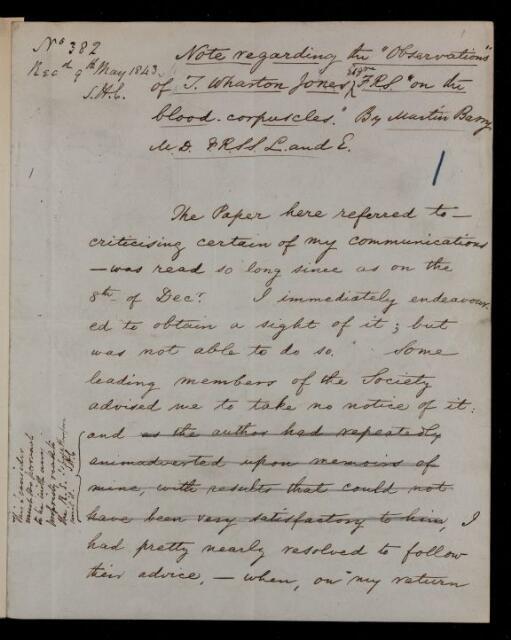 No 382
Recd 9th May 1843.
S.H.C.
Note regarding the "Observations"
of T. Wharton Jones Esqre F.R.S. "on the
blood-corpuscles." By Martin Barry
M.D. F.R.SS. L. and E.
1
The Paper here referred to —
criticising certain of my communications
— was read so long since as on the
8th of Decr. I immediately endeavour-
ed to obtain a sight of it; but
was not able to do so. Some
leading members of the Society
advised me to take no notice of it:
and as the author had repeatedly
animadverted upon memoirs of
mine, with results that could not
have been very satisfactory to him, I
had pretty nearly resolved to follow
their advice, — when, on my return
This I consider
much too personal
to be with any
propriety read to
the R.S.
S.H.C.